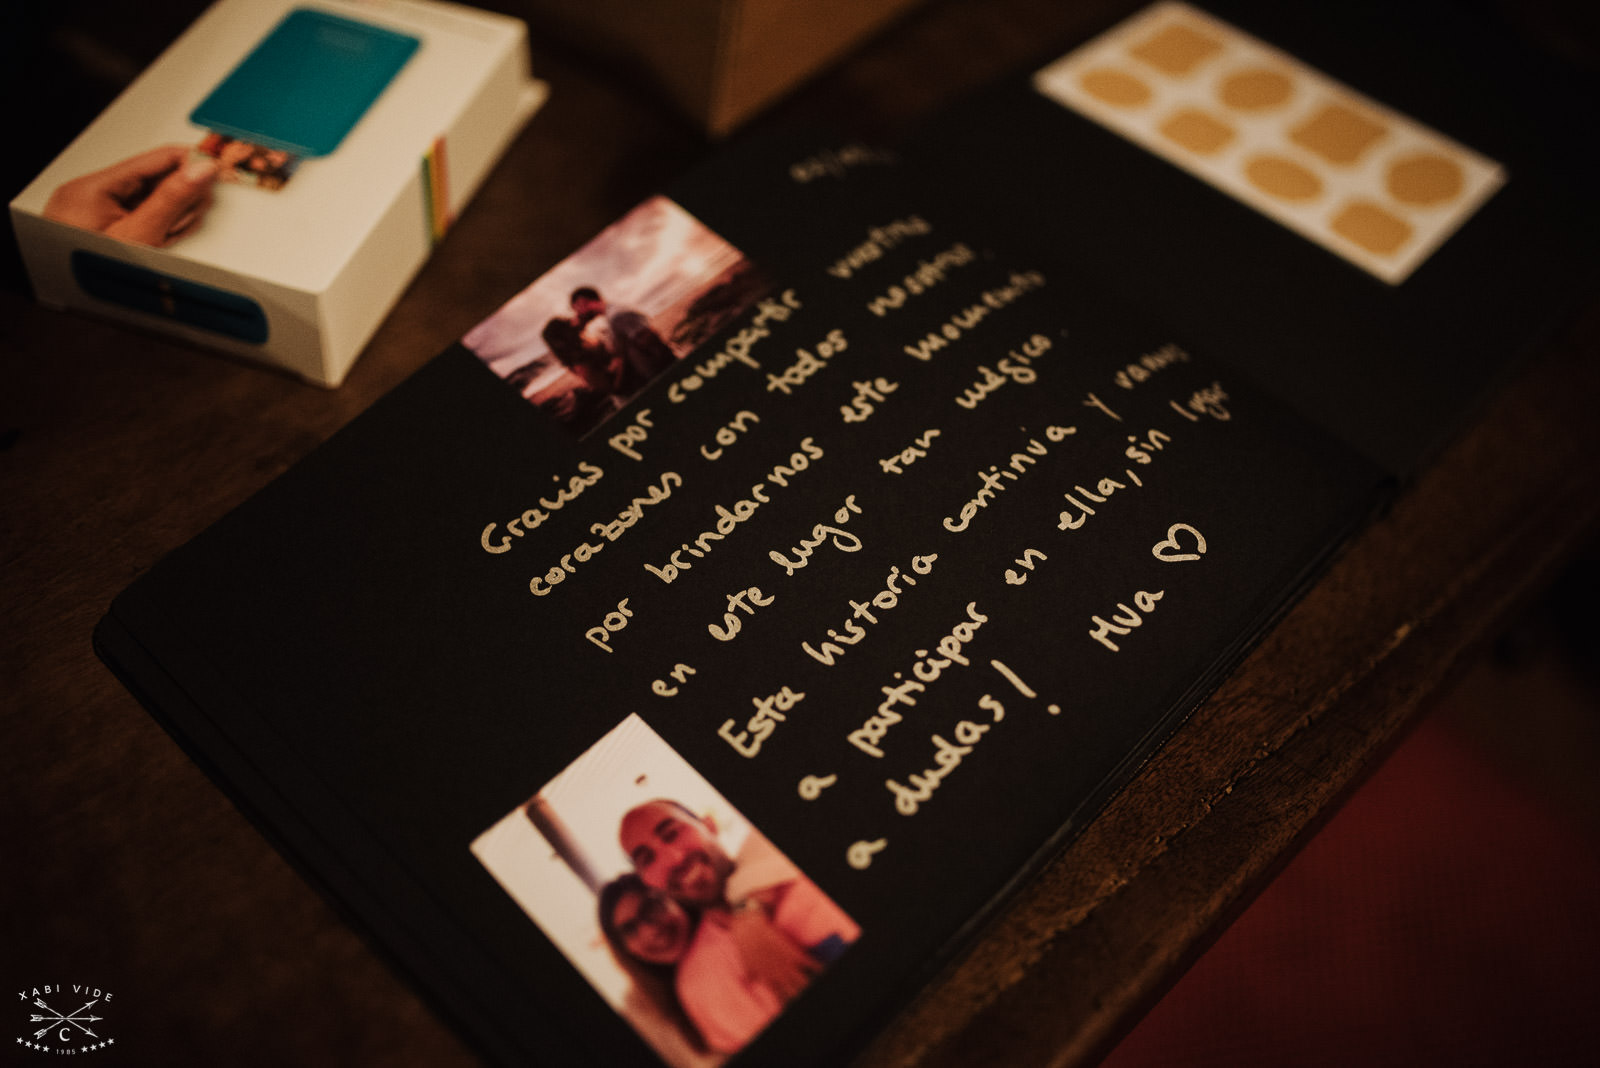 Gracias por compartir vuestros
corazones con todos nosotros.
por brindarnos este momento
en este lugar tan mágico.
Esta historia continúa y vamos
a participar en ella, sin lugar
a dudas!
MVA ♡
XABI VIDE
C
1985